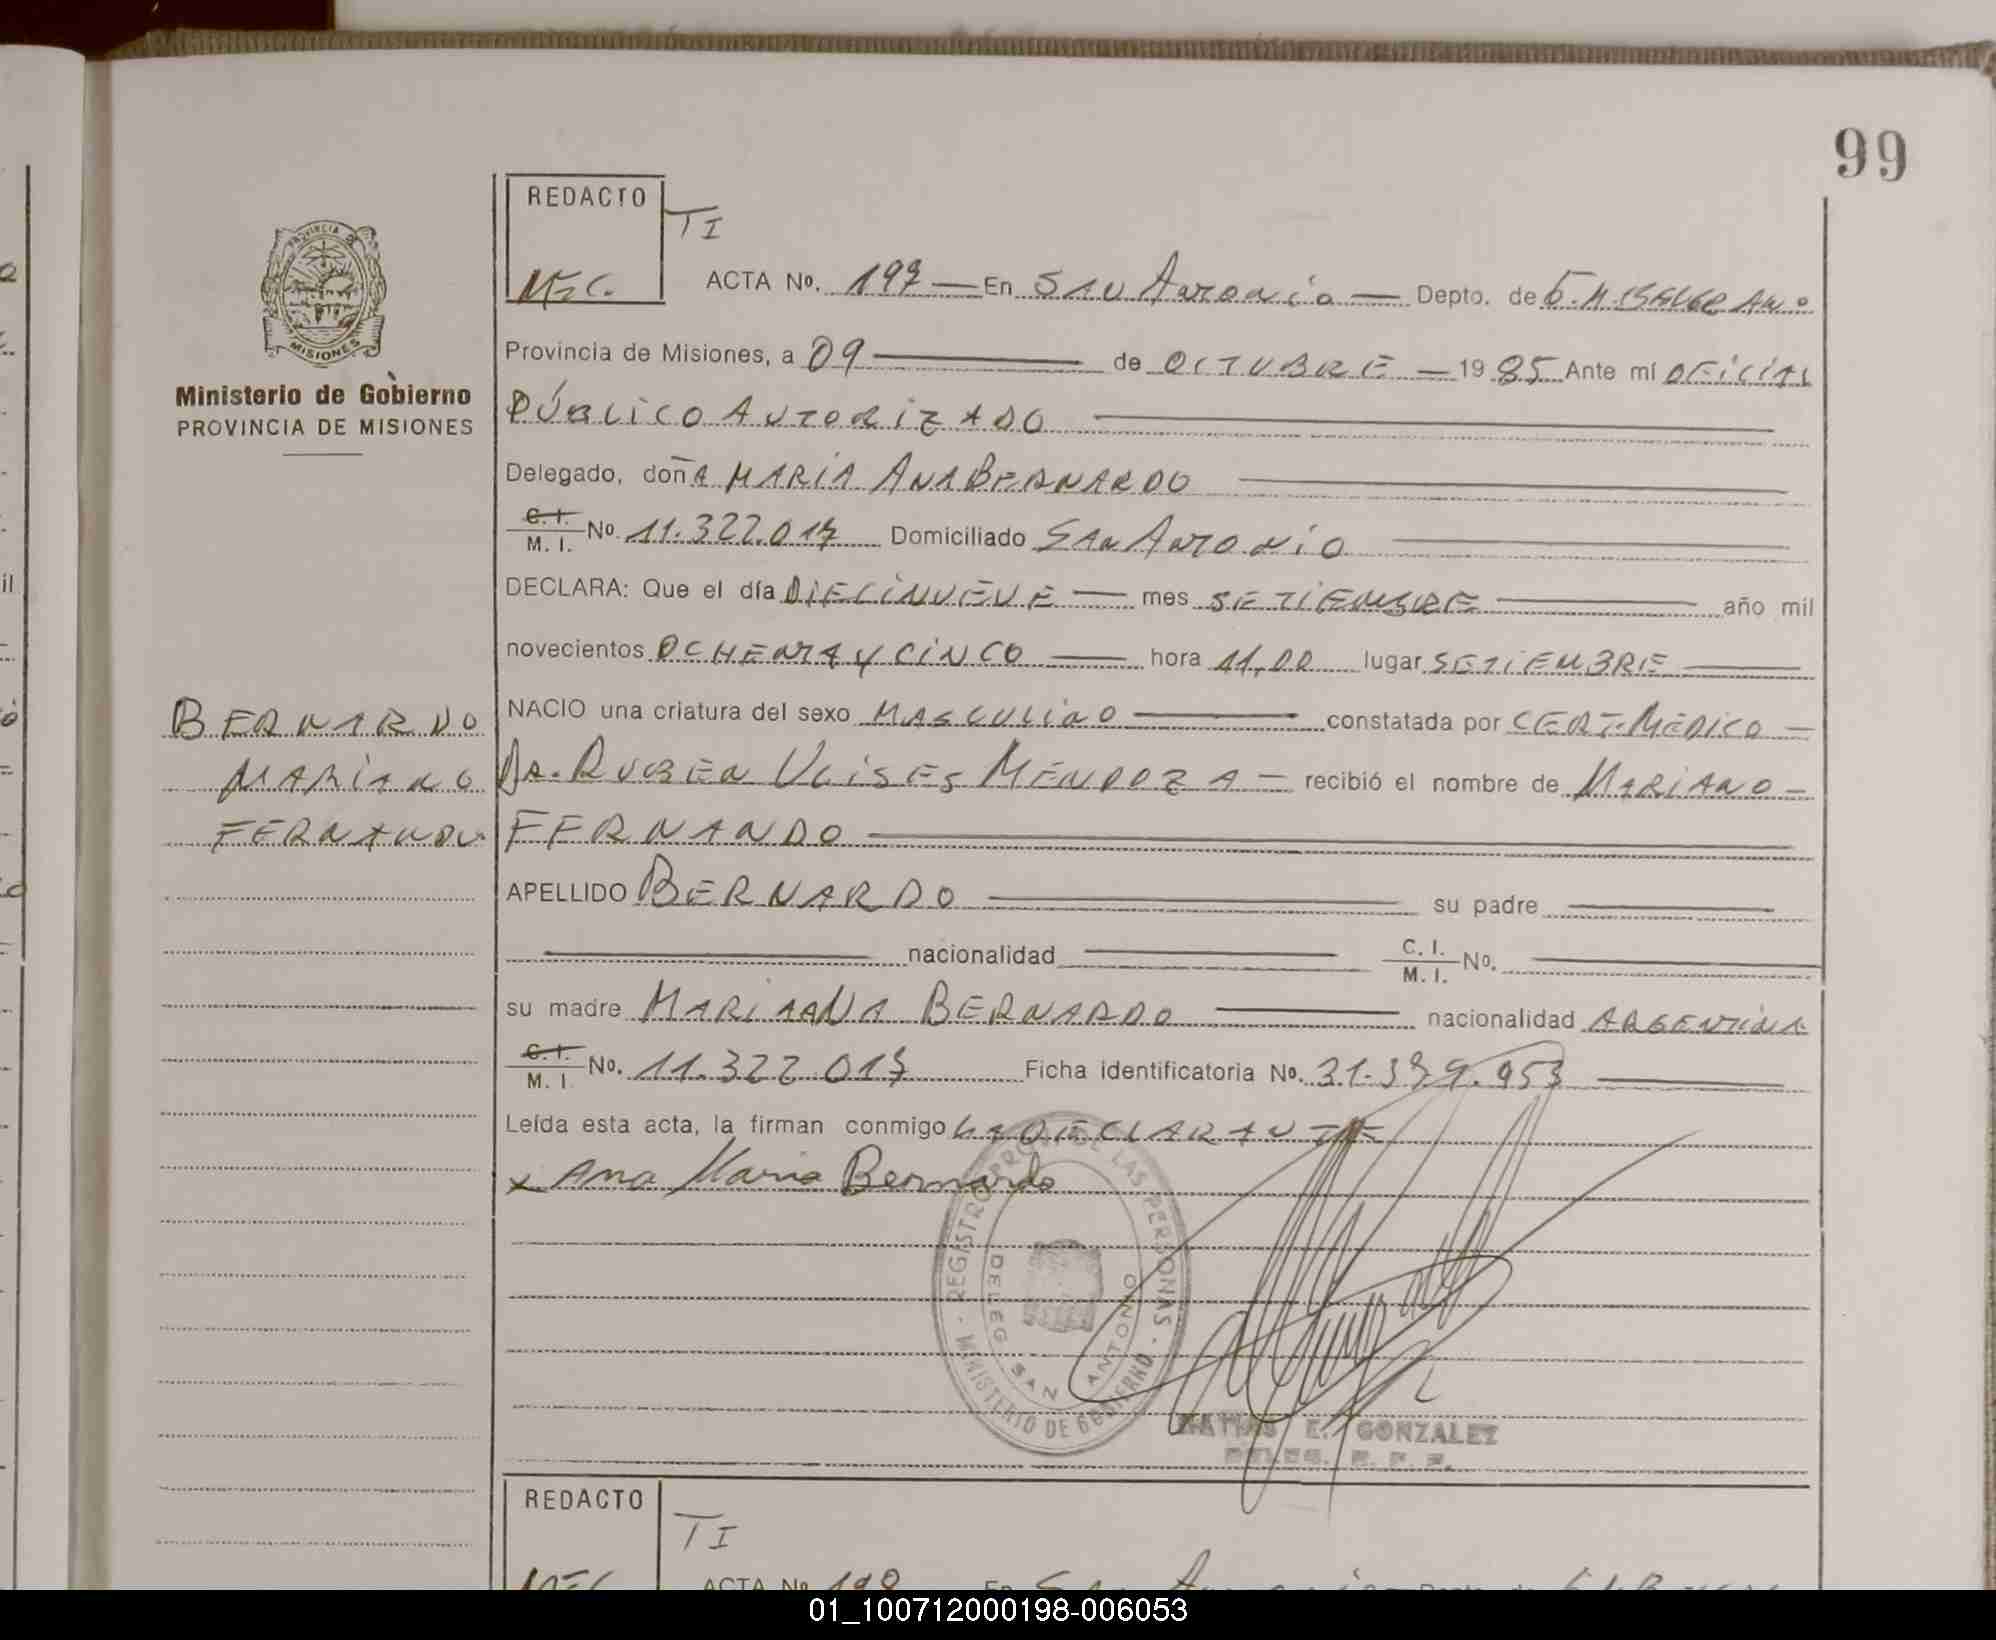 99
REDACTO
TI
ACTA No. 197 — En SAN ANTONIO — Depto. de G. M. BELGRANO
PROVINCIA DE
MISIONES
Provincia de Misiones, a 09 — de OCTUBRE — 1985 Ante mí OFICIAL
Ministerio de Gobierno
PROVINCIA DE MISIONES
PÚBLICO AUTORIZADO
Delegado, doñA MARÍA ANA BERNARDO
C. I. / M. I. No. 11.322.017 Domiciliado SAN ANTONIO
DECLARA: Que el día DIECINUEVE — mes SETIEMBRE — año mil
novecientos OCHENTA Y CINCO — hora 11,00 lugar SETIEMBRE
BERNARDO
MARIANO
FERNANDO
NACIO una criatura del sexo MASCULINO — constatada por CERT. MÉDICO —
DR. RUBEN ULISES MENDOZA — recibió el nombre de MARIANO —
FERNANDO
APELLIDO BERNARDO — su padre —
— nacionalidad — C. I. / M. I. No. —
su madre MARIAANA BERNARDO — nacionalidad ARGENTINA
C. I. / M. I. No. 11.322.017 Ficha identificatoria No. 31.339.953 —
Leída esta acta, la firman conmigo LA DECLARANTE
x Ana Maria Bernardo
REGISTRO PROV. DE LAS PERSONAS · MINISTERIO DE GOBIERNO ·
DELEG SAN ANTONIO
MATIAS E. GONZALEZ
DELEG. R. P. P.
REDACTO
TI
ACTA No 198 En SAN ANTONIO Depto. de
01_100712000198-006053